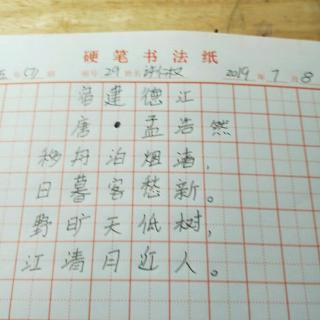 硬笔书法纸
年 班 编号 29 姓名 2019 年 7 月 8
宿建德江
唐·孟浩然
移舟泊烟渚,
日暮客愁新。
野旷天低树,
江清月近人。